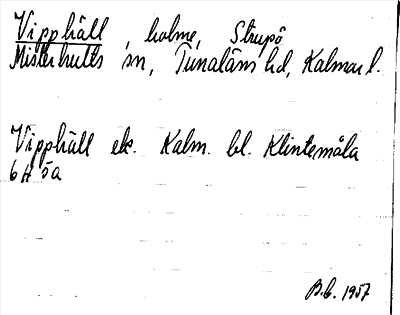 Vipphäll, holme, Strupö
Misterhults sn, Tunaläns hd, Kalmar l.
Vipphäll ek. Kalm. bl. Klintemåla
6H 5a
B.G. 1957